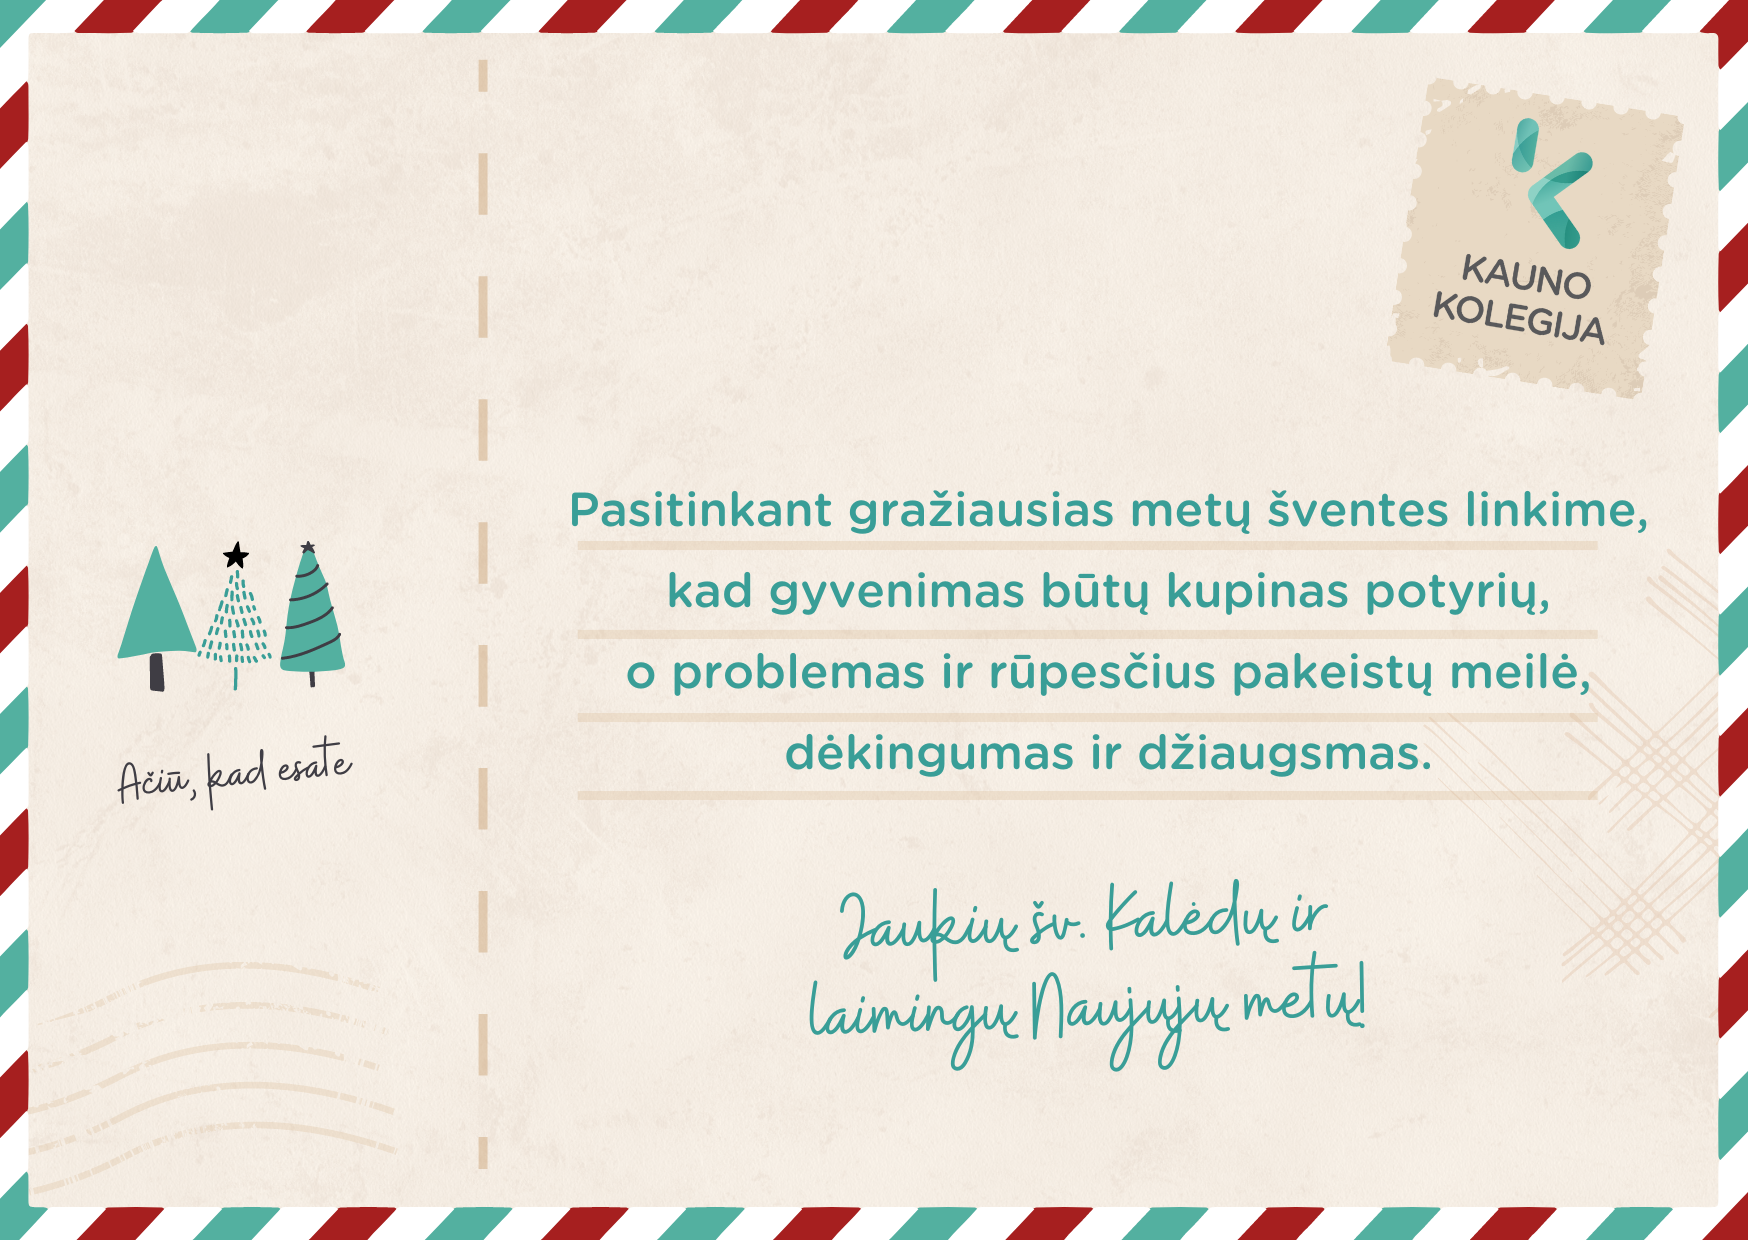 KAUNO
KOLEGIJA
Pasitinkant gražiausias metų šventes linkime,
kad gyvenimas būtų kupinas potyrių,
o problemas ir rūpesčius pakeistų meilė,
dėkingumas ir džiaugsmas.
Ačiū, kad esate
Jaukių šv. Kalėdų ir
laimingų Naujųjų metų!